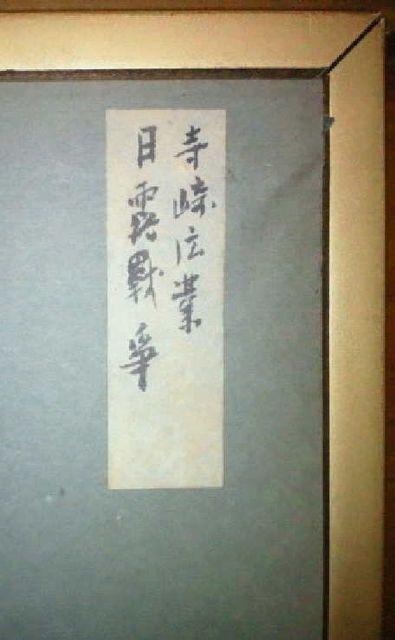 寺崎広業
日露戦争